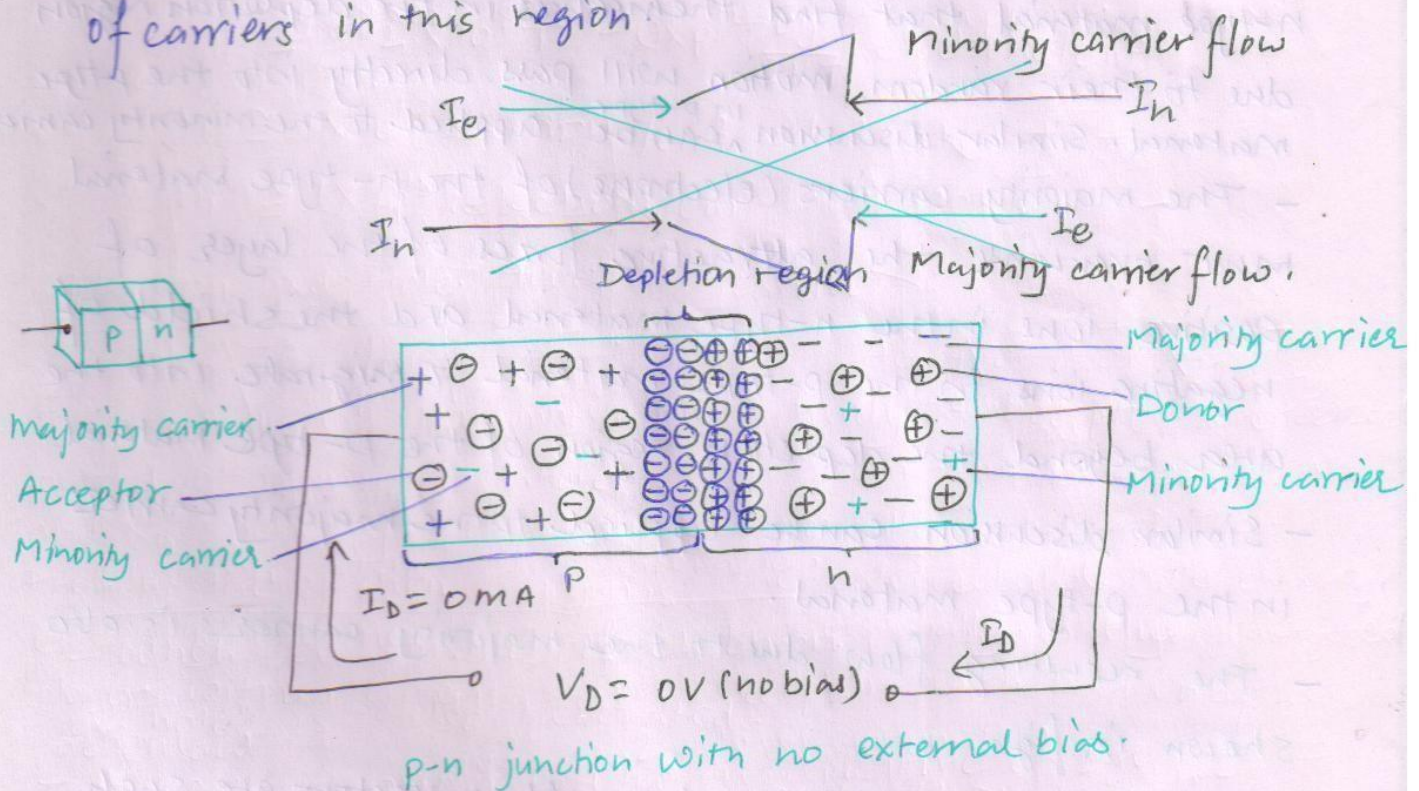 of carriers in this region.
Minority carrier flow
Ie
Ih
Ih
Ie
Depletion region
Majority carrier flow.
p n
Majority carrier
Donor
Minority carrier
majority carrier
Acceptor
Minority carrier
p
n
ID = 0mA
ID
VD = 0V (no bias)
p-n junction with no external bias.